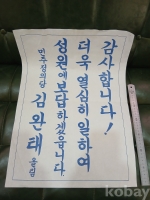 감사합니다!
더욱 열심히 일하여
성원에 보답하겠읍니다
민주정의당 김완태 올림
kobay